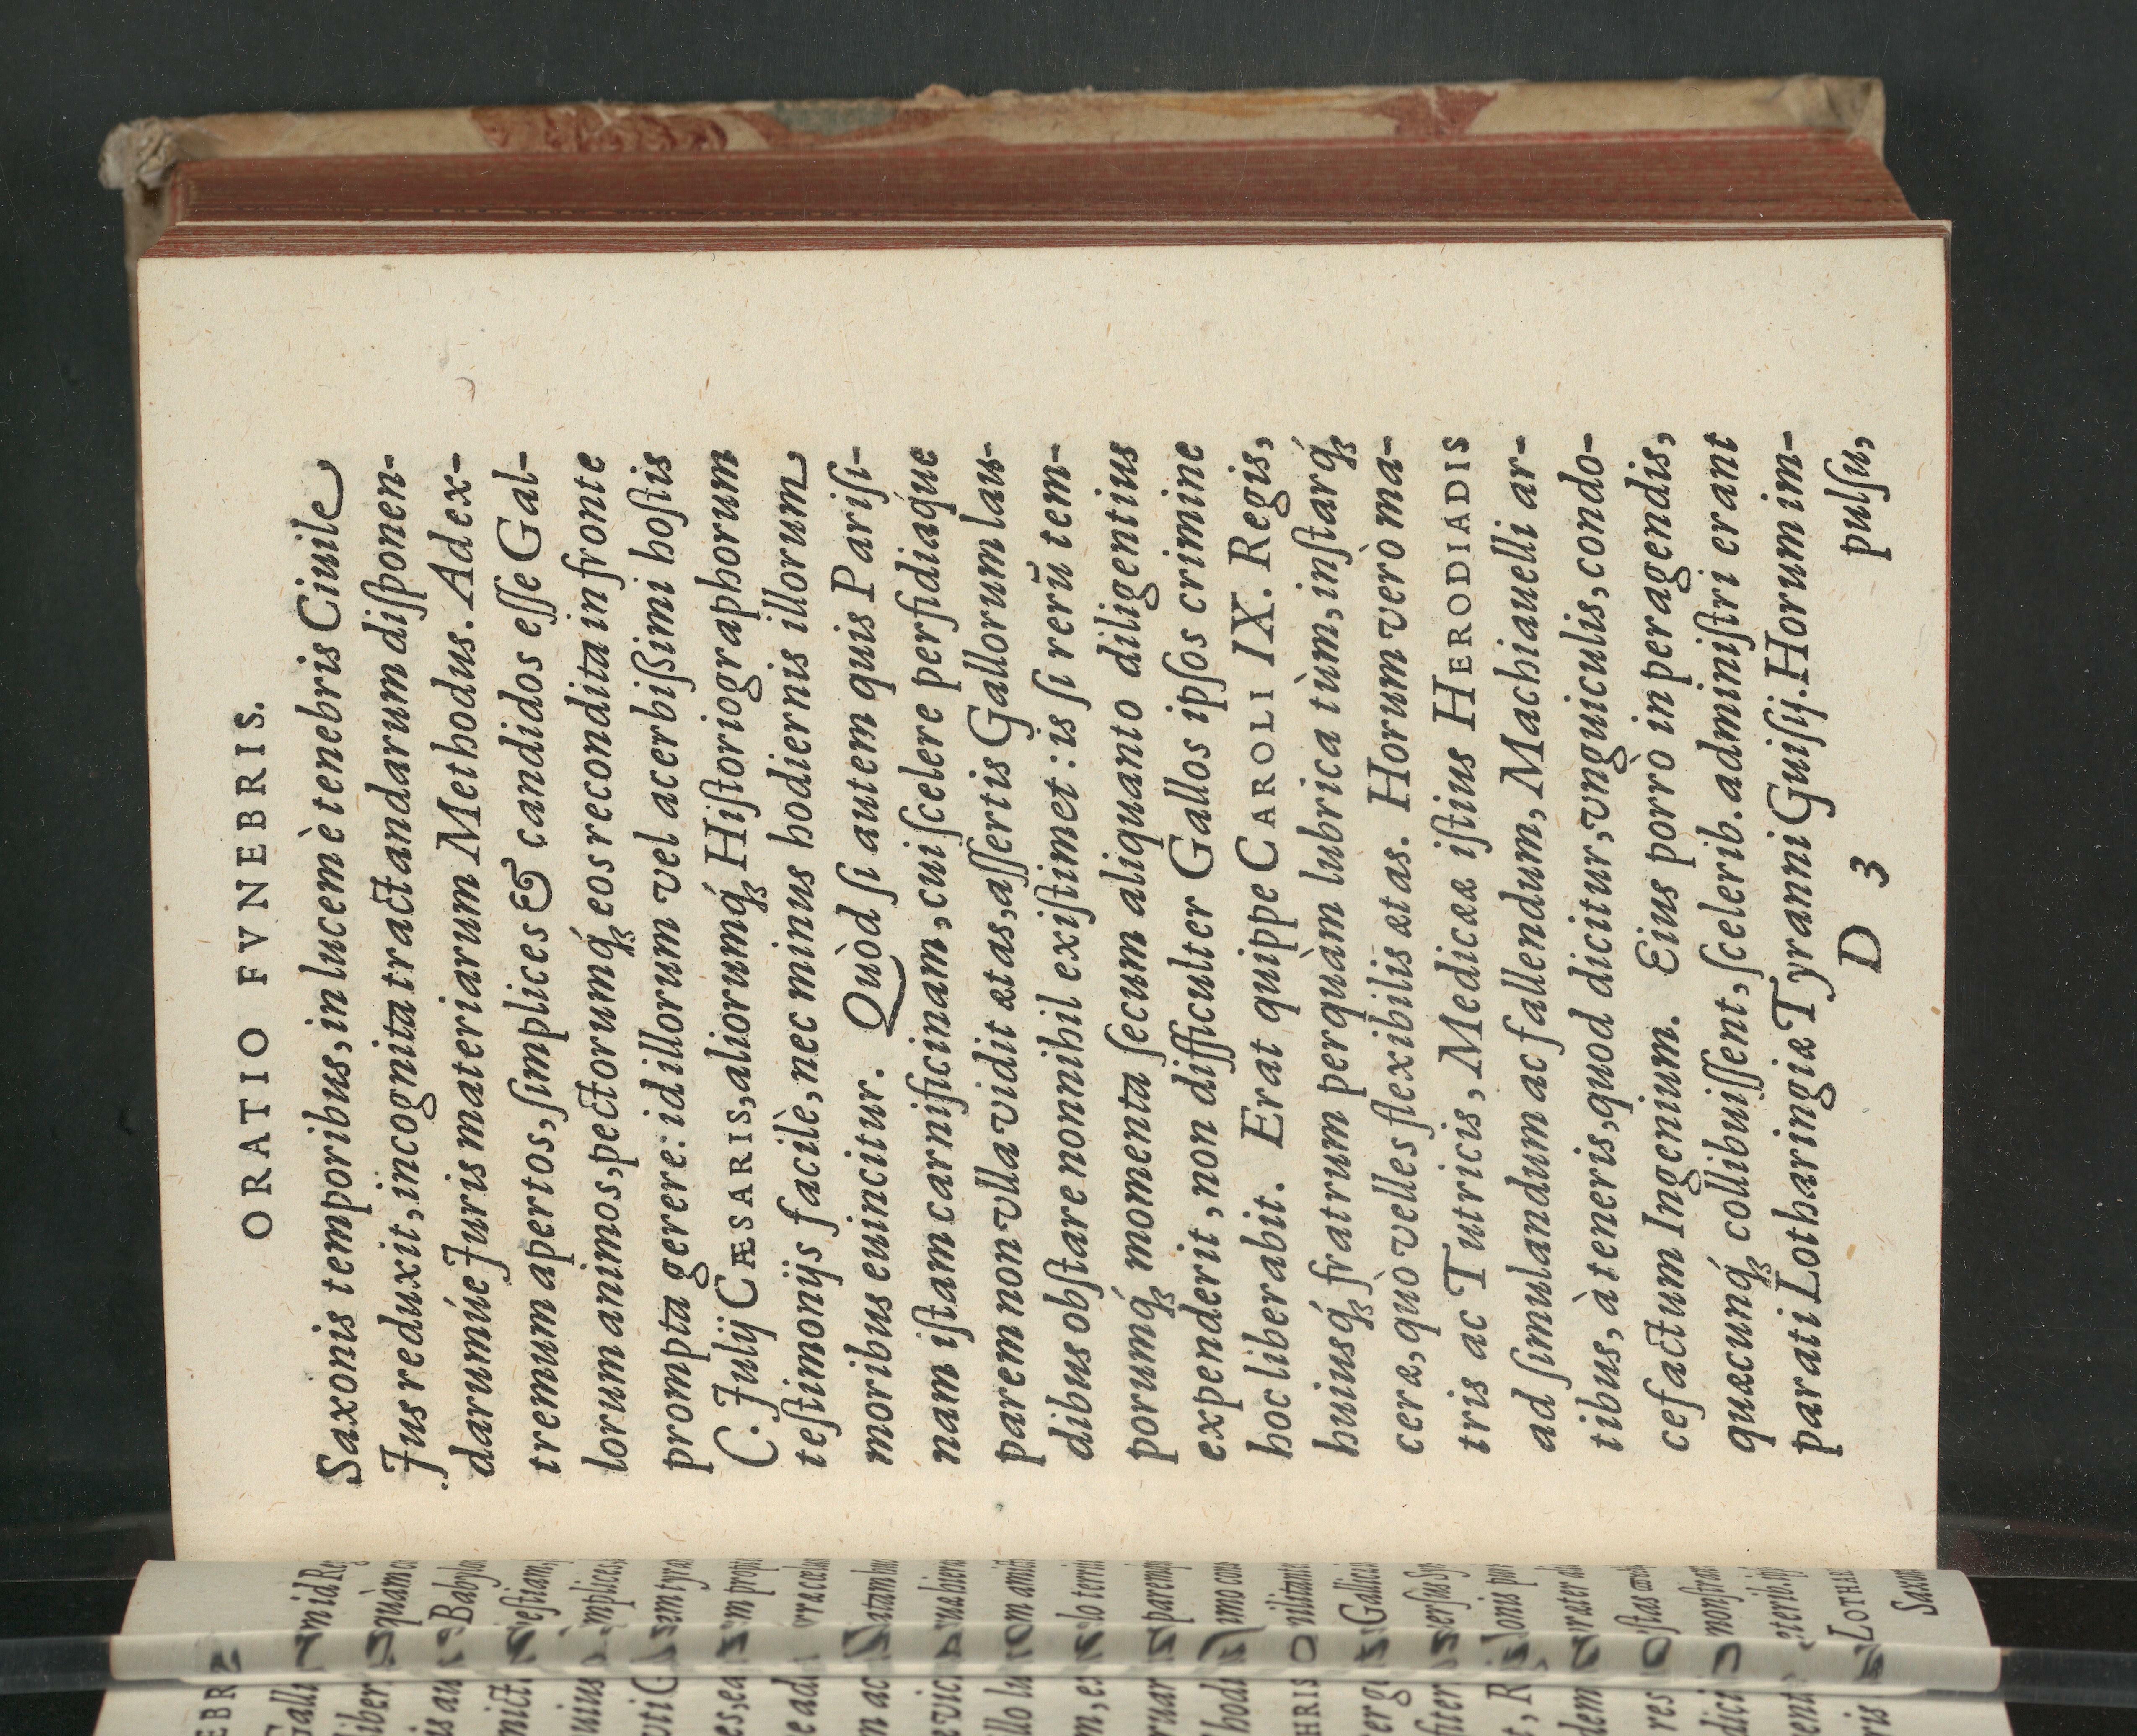 ORATIO FVNEBRIS.
Saxonis temporibus, in lucem è tenebris Ciuile
Jus reduxit, incognita tractandarum diſponen-
darumúe Juris materiarum Methodus. Ad ex-
tremum apertos, ſimplices & candidos eſſe Gal-
lorum animos, pectorumq́ꝫ eos recondita in fronte
prompta gerere: id illorum vel acerbißimi hoſtis
C. Julij CÆSARIS, aliorumq́ꝫ Hiſtoriographorum
teſtimonijs facilè, nec minus hodiernis illorum
moribus euincitur. Quòd ſi autem quis Pariſi-
nam iſtam carnificinam, cui ſcelere perfidiaq́ue
parem non vlla vidit ætas, aſſertis Gallorum lau-
dibus obſtare nonnihil exiſtimet: is ſi rerũ tem-
porumq́ꝫ momenta ſecum aliquanto diligentius
expenderit, non difficulter Gallos ipſos crimine
hoc liberabit. Erat quippe CAROLI IX. Regis,
huiusq́ꝫ fratrum perquàm lubrica tùm, inſtarq́ꝫ
ceræ, quò velles flexibilis ætas. Horum verò ma-
tris ac Tutricis, Medicææ iſtius HERODIADIS
ad ſimulandum ac fallendum, Machiauelli ar-
tibus, à teneris, quod dicitur, vnguiculis, condo-
cefactum Ingenium. Eius porrò in peragendis,
quæcunq́ꝫ collibuiſſent, ſcelerib. adminiſtri erant
parati Lotharingiæ Tyranni Guiſij. Horum im-
D 3 pulſu,